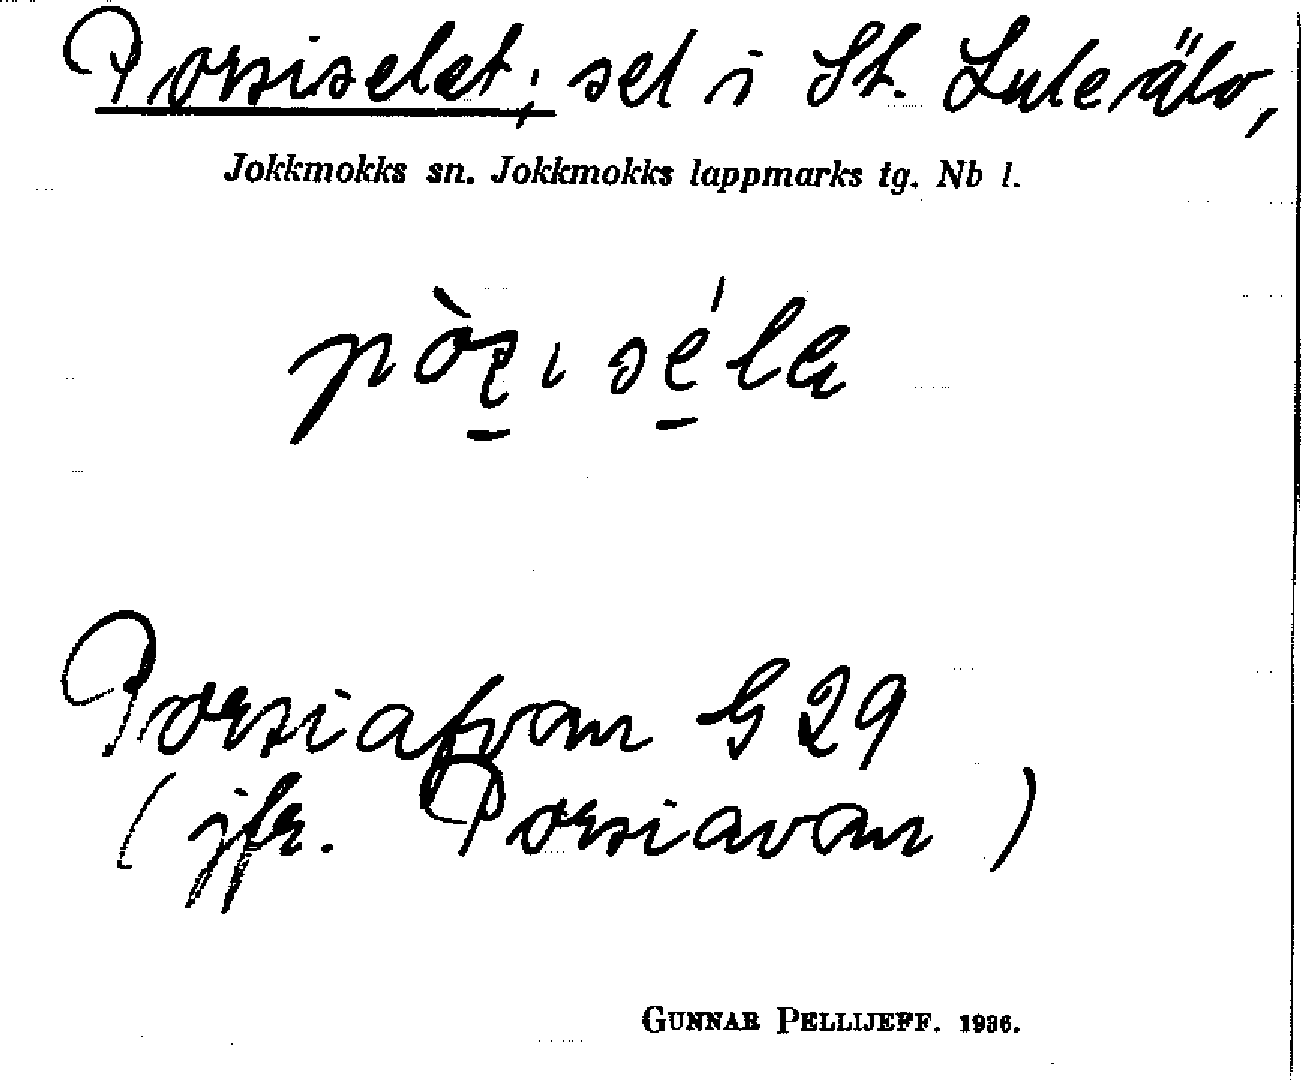 Porsiselet; sel i St. Lule älv,
Jokkmokks sn. Jokkmokks lappmarks tg. Nb l.
Porsiafvan G 29
(jfr. Porsiavan)
GUNNAR PELLIJEFF. 1936.